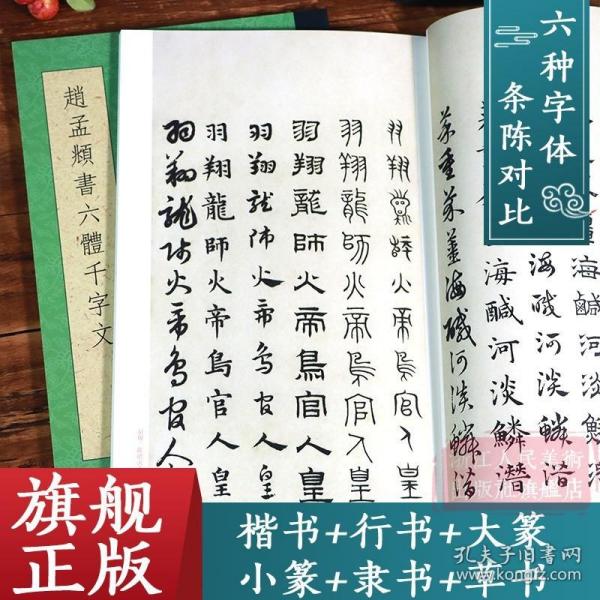 六种字体
条陈对比
趙孟頫書六體千字文
羽翔龍師火帝鳥官人皇
羽翔龍師火帝鳥官人皇
羽翔龍師火帝鳥官人皇
羽翔龍師火帝鳥官人皇
羽翔龍師火帝鳥官人皇
羽翔龍師火帝鳥官人
海鹹河淡鱗
海鹹河淡鱗潛
海鹹河淡鱗潛
菜重芥薑海鹹河淡鱗潛
浙江人民美術
出版社旗舰店
旗舰
正版
楷书+行书+大篆
小篆+隶书+草书
孔夫子旧书网
www.kongfz.com